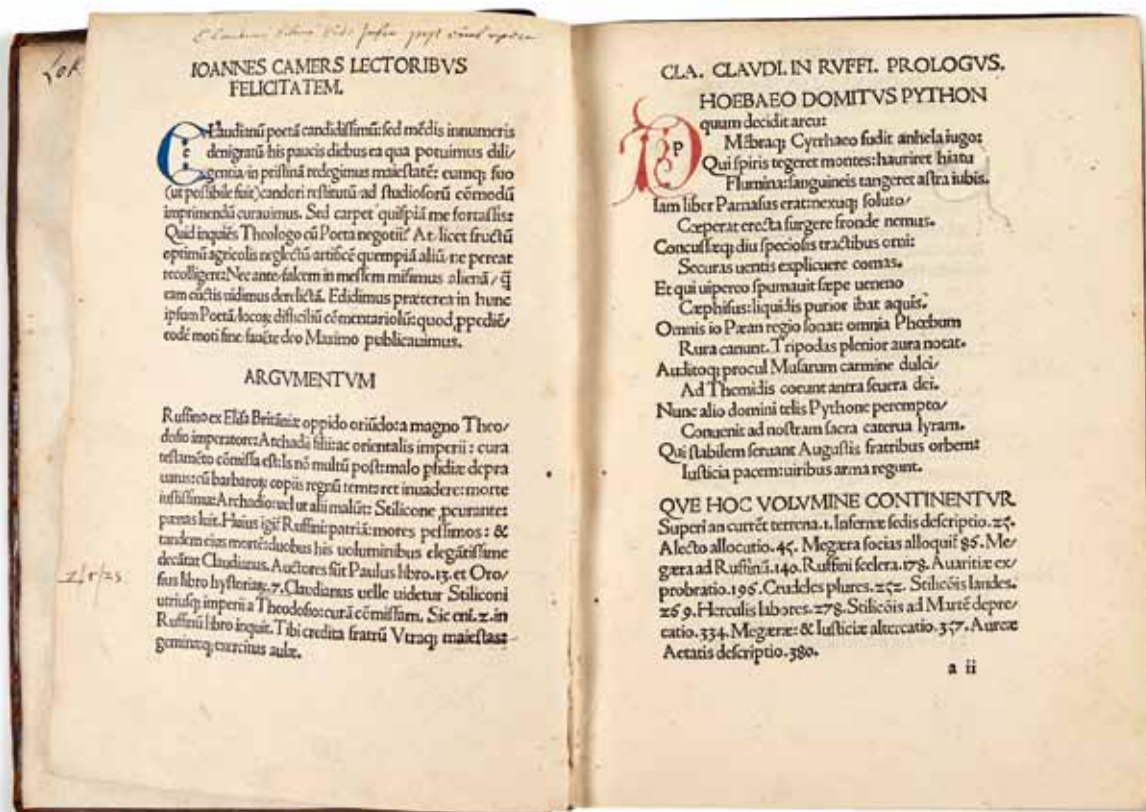 Lok
IOANNES CAMERS LECTORIBVS
FELICITATEM.
Claudianū poetā candidissimū: sed mēdis innumeris
denigratū his paucis diebus ea qua potuimus dili/
gentia/in pristinā redegimus maiestatē: eumq; suo
(ut possibile fuit) candori restitutū ad studiosorū cōmodū
imprimendū curauimus. Sed carpet quispiā me fortassis:
Quid inquiēs Theologo cū Poeta negotii? At licet fructū
optimū agricolis neglectū artificē quempiā aliū/ne pereat
recolligere: Nec ante/falcem in messem misimus alienā/ q̄
eam cūctis uidimus derelictā. Edidimus præterea in hunc
ipsum Poetā/locoꝝ difficiliū cōmentariolū: quod ꝓpediē/
eodē moti fine fauēte deo Maximo publicauimus.
ARGVMENTVM
Ruffino ex Elisa Britāniæ oppido oriūdo: a magno Theo/
dosio imperatore: Archadii filii: ac orientalis imperii: cura
testamēto cōmissa est: Is nō multū post: malo ꝑfidiæ depra
uatus: cū barbaroꝝ copiis regnū temtaret inuadere: morte
iustissima: Archadio: uel ut alii malūt: Stilicone ꝓcurante:
pœnas luit. Huius igit Ruffini: patriā: mores pessimos: &
tandem eius mortē: duobus his uoluminibus elegātissime
decātat Claudianus. Auctores sūt Paulus libro.13. et Oro/
sius libro hystoriaꝝ.7. Claudianus uelle uidetur Stiliconi
utriusq; imperii a Theodosio: curā cōmissam. Sic eni.2. in
Ruffinū libro inquit. Tibi credita fratrū Vtraq; maiestas:
geminæq; exercitus aulæ.
CLA. CLAVDI. IN RVFFI. PROLOGVS.
PHOEBAEO DOMITVS PYTHON
quum decidit arcu:
Mēbraq; Cyrrhaeo fudit anhela iugo:
Qui spiris tegeret montes: hauriret hiatu
Flumina: sanguineis tangeret astra iubis.
Iam liber Parnasus erat: nexuq; soluto/
Cœperat erecta surgere fronde nemus.
Concussæq; diu speciosis tractibus orni:
Securas uentis explicuere comas.
Et qui uipereo spumauit sæpe ueneno
Cæphisus: liquidis purior ibat aquis.
Omnis io Pæan regio sonat: omnia Phœbum
Rura canunt. Tripodas plenior aura notat.
Auditoq; procul Musarum carmine dulci/
Ad Themidis coeunt antra seuera dei.
Nunc alio domini telis Pythone perempto/
Conuenit ad nostram sacra caterua lyram.
Qui stabilem seruans Augustis fratribus orbem:
Iusticia pacem: uiribus arma regunt.
QVE HOC VOLVMINE CONTINENTVR
Superi an curēt terrena.1. Infernæ sedis descriptio.25.
Alecto allocutio.45. Megæra socias alloquit 86. Me/
gæra ad Ruffinū.140. Ruffini scelera.178. Auaritiæ ex/
probratio.196. Crudeles plures.252. Stilicōis laudes.
269. Herculis labores.278. Stilicōis ad Martē depre/
catio.334. Megæræ: & Iusticiæ altercatio.357. Aureæ
Aetatis descriptio.380.
a ii